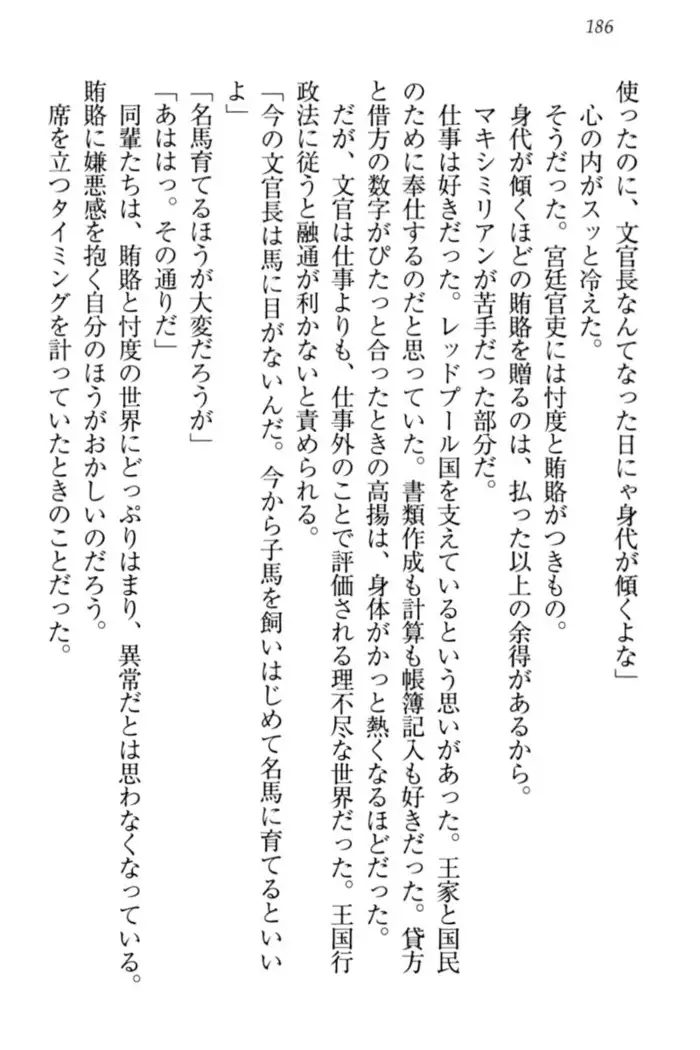 186
使ったのに、文官長なんてなった日にゃ身代が傾くよな」
心の内がスッと冷えた。
そうだった。宮廷官吏には忖度と賄賂がつきもの。
身代が傾くほどの賄賂を贈るのは、払った以上の余得があるから。
マキシミリアンが苦手だった部分だ。
仕事は好きだった。レッドプール国を支えているという思いがあった。王家と国民
のために奉仕するのだと思っていた。書類作成も計算も帳簿記入も好きだった。貸方
と借方の数字がぴたっと合ったときの高揚は、身体がかっと熱くなるほどだった。
だが、文官は仕事よりも、仕事外のことで評価される理不尽な世界だった。王国行
政法に従うと融通が利かないと責められる。
「今の文官長は馬に目がないんだ。今から子馬を飼いはじめて名馬に育てるといい
よ」
「名馬育てるほうが大変だろうが」
「あははっ。その通りだ」
同輩たちは、賄賂と忖度の世界にどっぷりはまり、異常だとは思わなくなっている。
賄賂に嫌悪感を抱く自分のほうがおかしいのだろう。
席を立つタイミングを計っていたときのことだった。